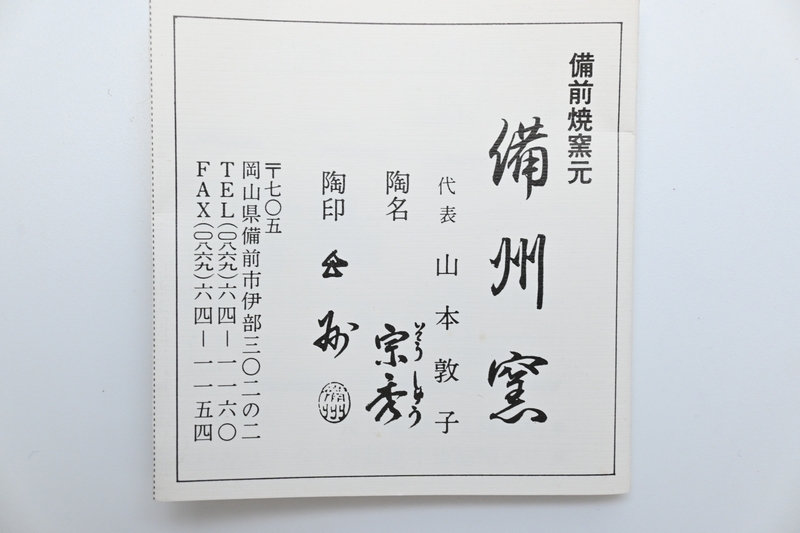 備前焼窯元
備州窯
代表 山本敦子
陶名 宗秀
そうしゅう
陶印
〒七〇五
岡山県備前市伊部三〇二の二
TEL(〇八六九)六四―一一六〇
FAX(〇八六九)六四―一一五四